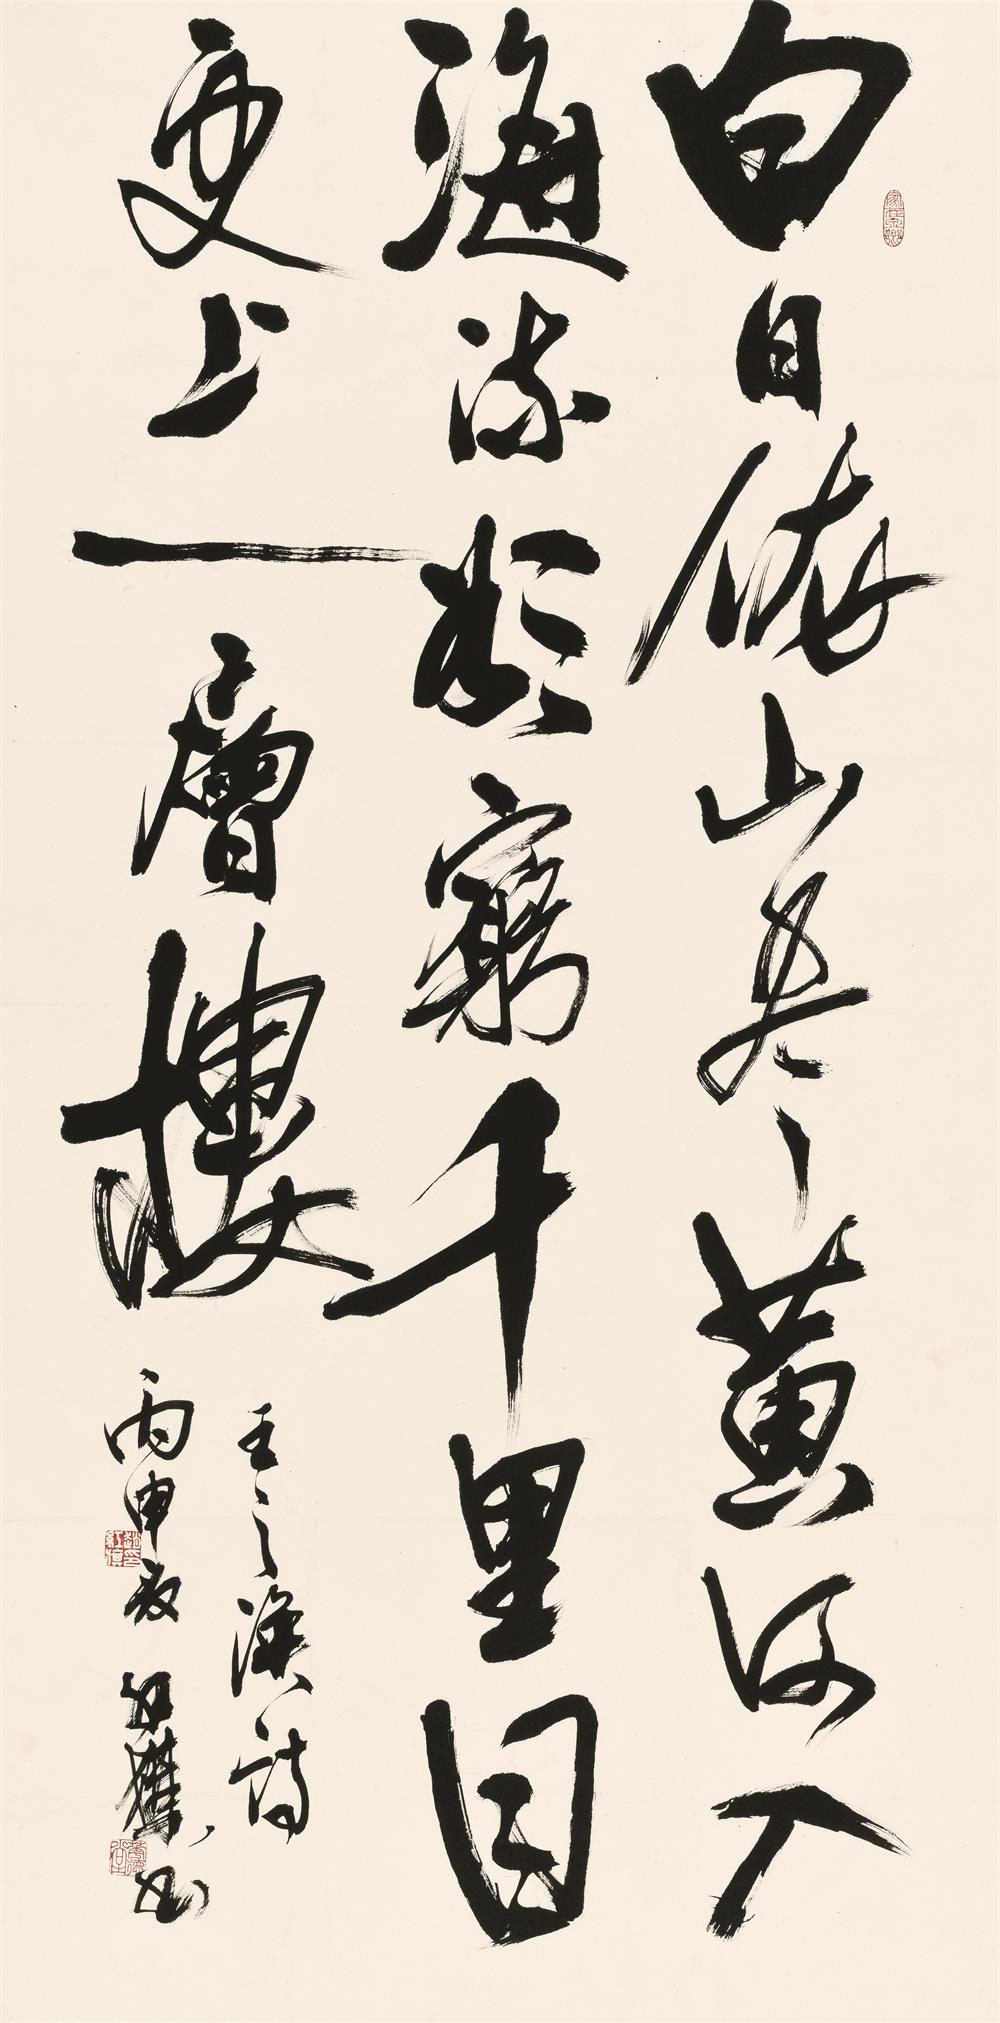 白日依山尽黄河入
海流欲穷千里目
更上一層樓
王之涣诗
丙申夏
书